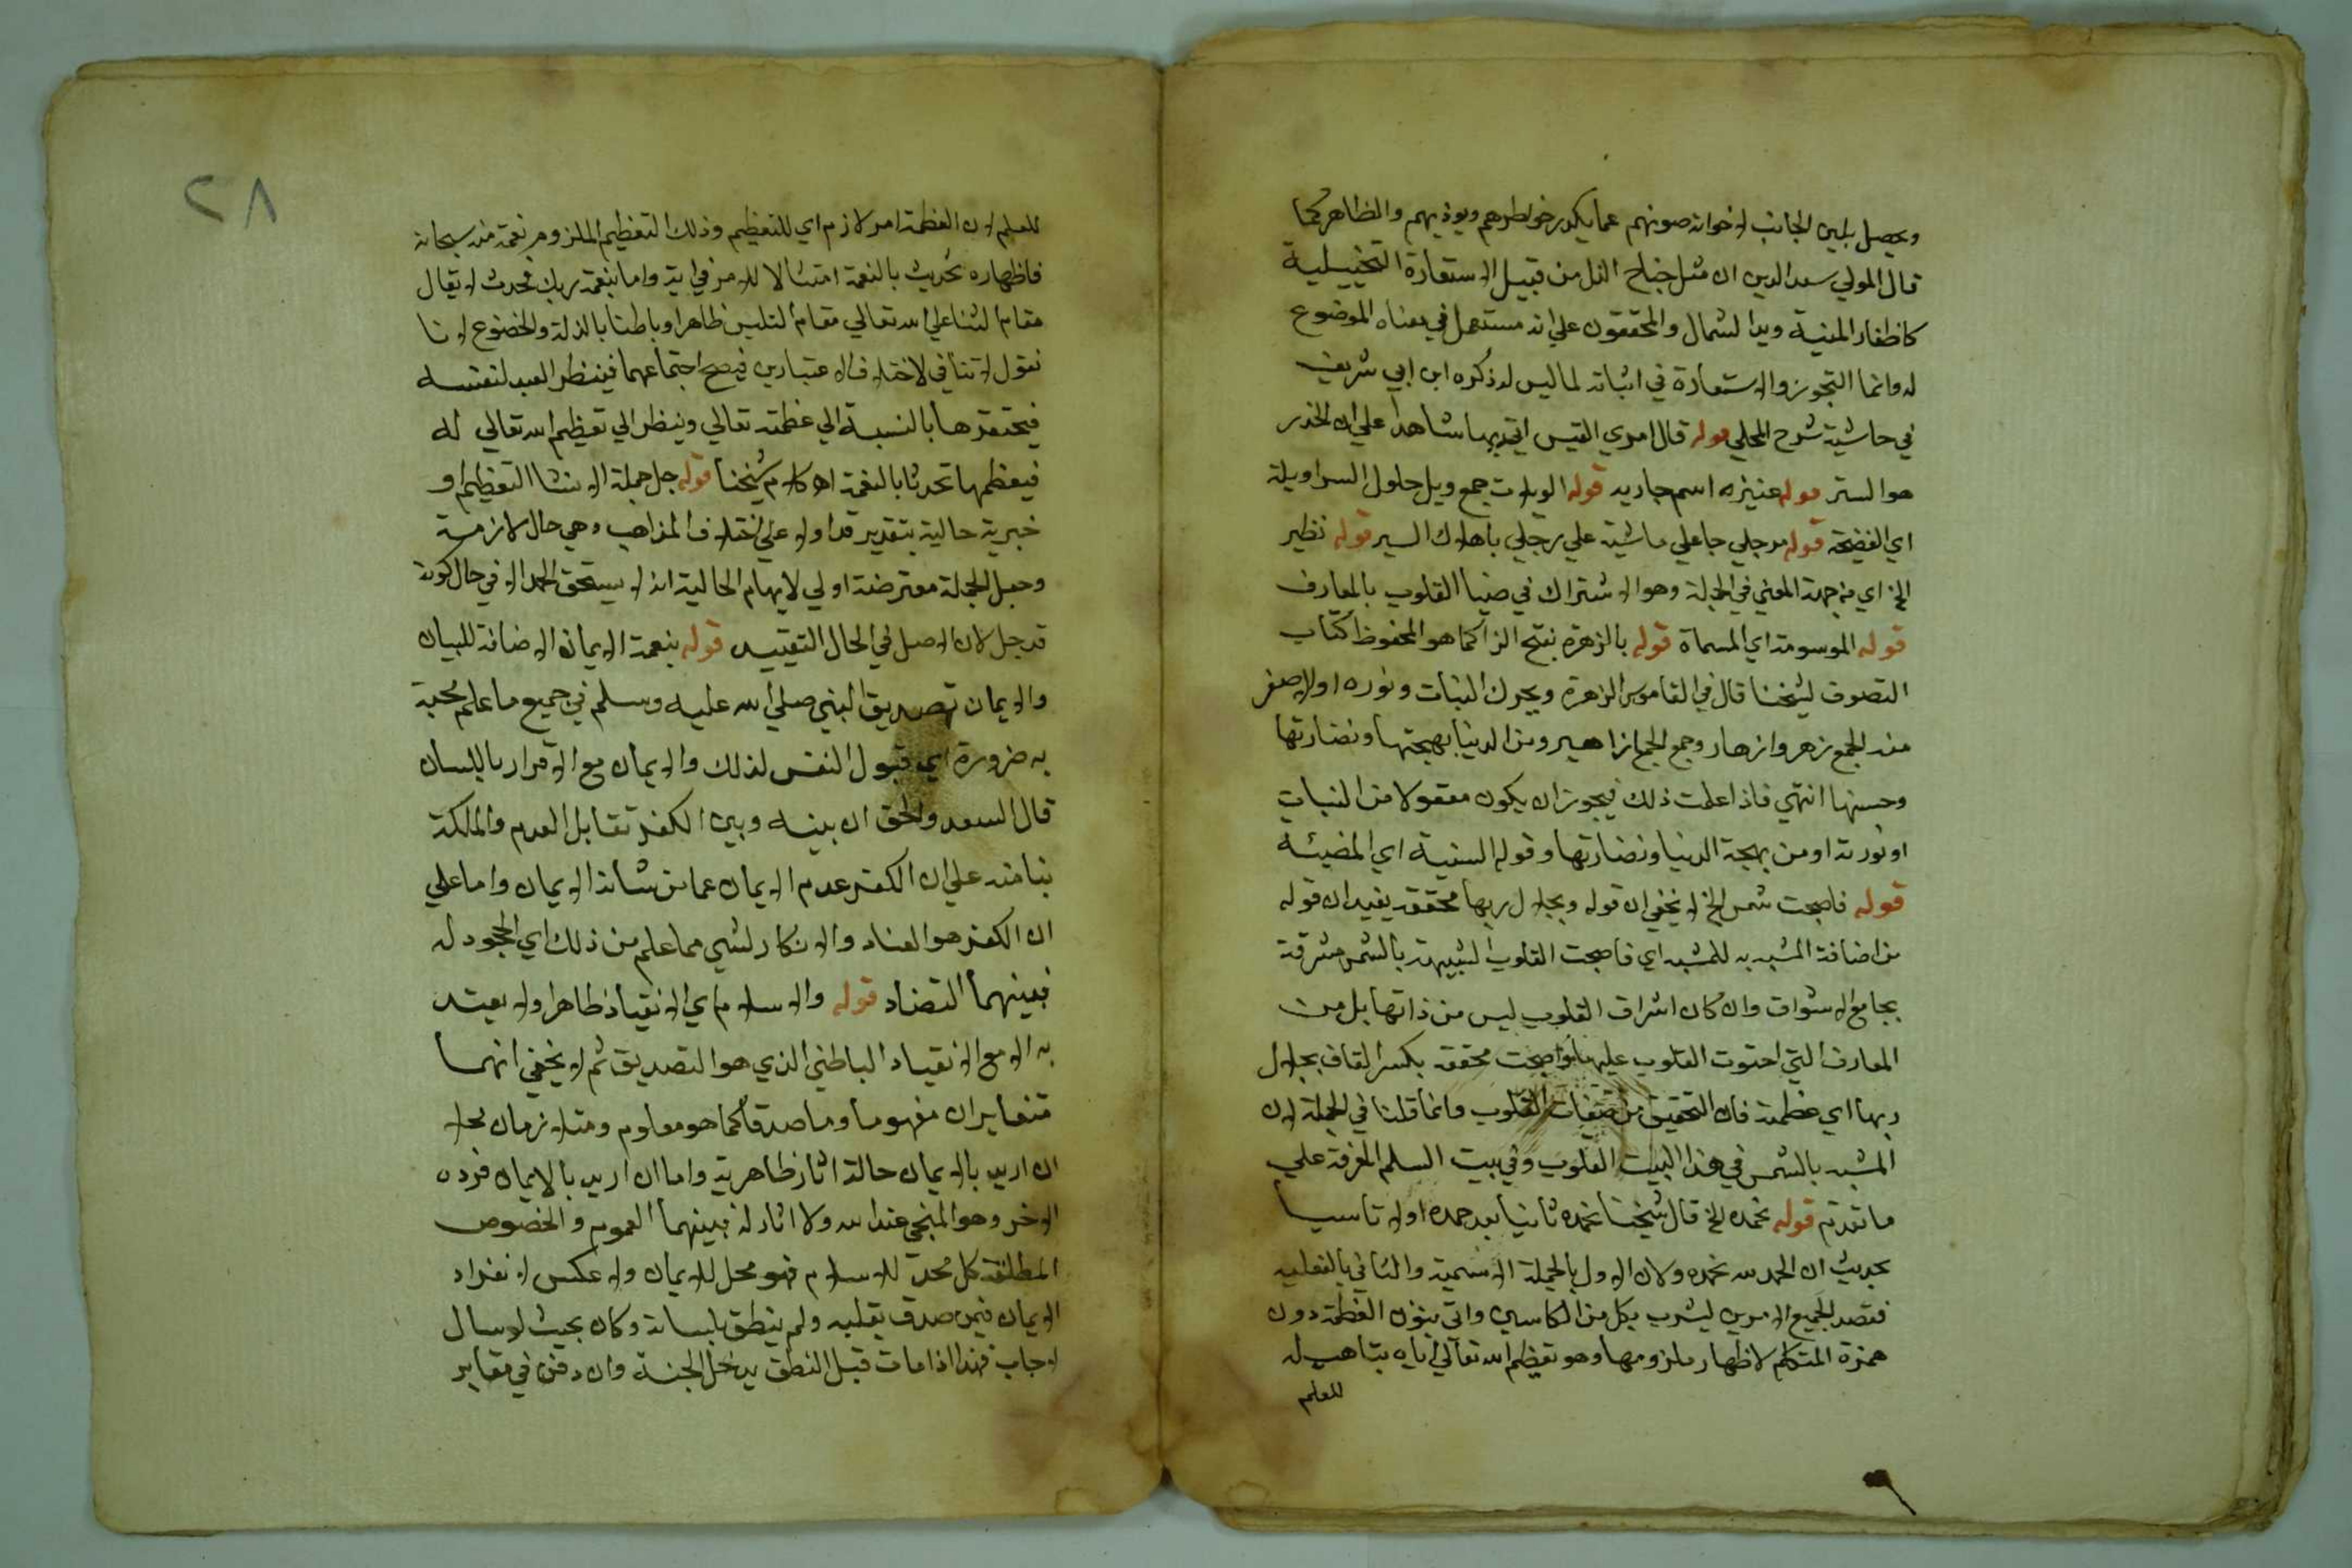 ويحصل بلين الجانب لاخوانه صونهم عما يكدر خواطرهم ويوذيهم والظاهر كما
قال المولي سعد الدين ان مثل جناح الذل من قبيل الاستعارة التخييلية
كاظفار المنية ويد الشمال والمحققون علي انه مستعمل في معناه الموضوع
له وانما التجوز والاستعارة في اثباته لما ليس له ذكره ابن ابي شريف
في حاشية شرح المحلي قوله قال امري القيس اتي بها شاهدا علي ان الخدر
هو الستر قوله عنيزه اسم جاريه قوله الويلات جمع ويل حلول السرا ويلة
اي الفضيحة قوله مرجلي جاعلي ماشية علي رجلي باهلاك السير قوله نظير
الخ اي من جهة المعني في الجملة وهو الاشتراك في ضيا القلوب بالمعارف
قوله الموسومة اي المسماة قوله بالزهرة بفتح الزا كما هو المحفوظ كتاب
التصوف لشيخنا قال في القاموس الزهرة ويحرك النبات ونوره او الاصفر
منه الجمع زهر وازهار وجمع الجمع ازاهير ومن الدنيا بهجتها ونضارتها
وحسنها انتهي فاذا علمت ذلك فيجوز ان يكون منقولا من النبات
او نوره او من بهجة الدنيا ونضارتها وقوله السنية اي المضيئة
قوله فاصبحت شمس الخ لا يخفي ان قوله وبجلال ربها محققه يفيد ان قوله
من اضافة المشبه به للمشبه اي فاصبحت القلوب الشبيهة بالشمس مشرقة
بجامع الاشراق وان كان اشراق القلوب ليس من ذاتها بل من
المعارف التي احتوت القلوب عليها واصبحت محققه بكسر القاف بجلال
ربها اي عظمته فان التحقيق من صفات القلوب وانما قلنا في الجملة لان
المشبه بالشمس في هذا البيت القلوب وفي بيت السلم المعرفة علي
ما تقدم قوله نحمده الخ قال شيخنا نحمده ثانيا بعد حمده اولا تاسيا
بحديث ان الحمد لله نحمده ولان الاول بالجملة الاسمية والثاني بالفعليه
فقصد الجميع الامرين ليشرب بكل من الكاسين واتي بنون العظمة دون
همزة المتكلم لاظهار ملزومها وهو تعظيم الله تعالي اياه بتاهيله
للعلم
٢٨
للعلم لان العظمة امر لازم اي للتعظيم وذلك التعظيم الملزوم نعمة منه سبحانه
فاظهاره تحديث بالنعمة امتثالا للامر في اية واما بنعمة ربك فحدث لا يقال
مقام الثنا علي الله تعالي مقام التلبس ظاهرا وباطنا بالذلة والخضوع لانا
نقول لا تنافي لاختلاف الاعتبارين فيصح اجتماعهما فينظر العبد لنفسه
فيحتقرها بالنسبة الي عظمته تعالي وينظر الي تعظيم الله تعالي له
فيعظمها تحدثا بالنعمة اه كلام شيخنا قوله جل جملة الانشا التعظيم او
خبرية حالية بتقدير قد او لا علي اختلاف المذاهب وهي حال لازمة
وجعل الجملة معترضة اولي لايهام الحالية انه لا يستحق الحمد الا في حال كونه
قد جل لان الاصل في الحال التقييد قوله بنعمة الايمان الاضافة للبيان
والايمان تصديق النبي صلي الله عليه وسلم في جميع ما علم مجية
به ضرورة اي قبول النفس لذلك والايمان مع الاقرار باللسان
قال السعد والحق ان بينه وبين الكفر تقابل العدم والملكة
بنا منه علي ان الكفر عدم الايمان عما من شانه الايمان واما علي
ان الكفر هو العناد والانكار لشي مما علم من ذلك اي الجحود له
فبينهما التضاد قوله والاسلام اي الانقياد ظاهرا ولا يعتد
به الا مع الانقياد الباطني الذي هو التصديق ثم لا يخفي انهما
متغايران مفهوما وماصدقا كما هو معلوم ومتلازمان محلا
ان اريد بالايمان حالة اثار ظاهرية واما ان اريد بالايمان فرده
الاخر وهو المنجي عند الله ولا اثار له فبينهما العموم والخصوص
المطلق كل محل للاسلام فهو محل للايمان ولا عكس لانفراد
الايمان فيمن صدق بقلبه ولم ينطق بلسانه وكان بحيث لو سال
لاجاب فهذا اذا مات قبل النطق يدخل الجنة وان دفن في مقابر